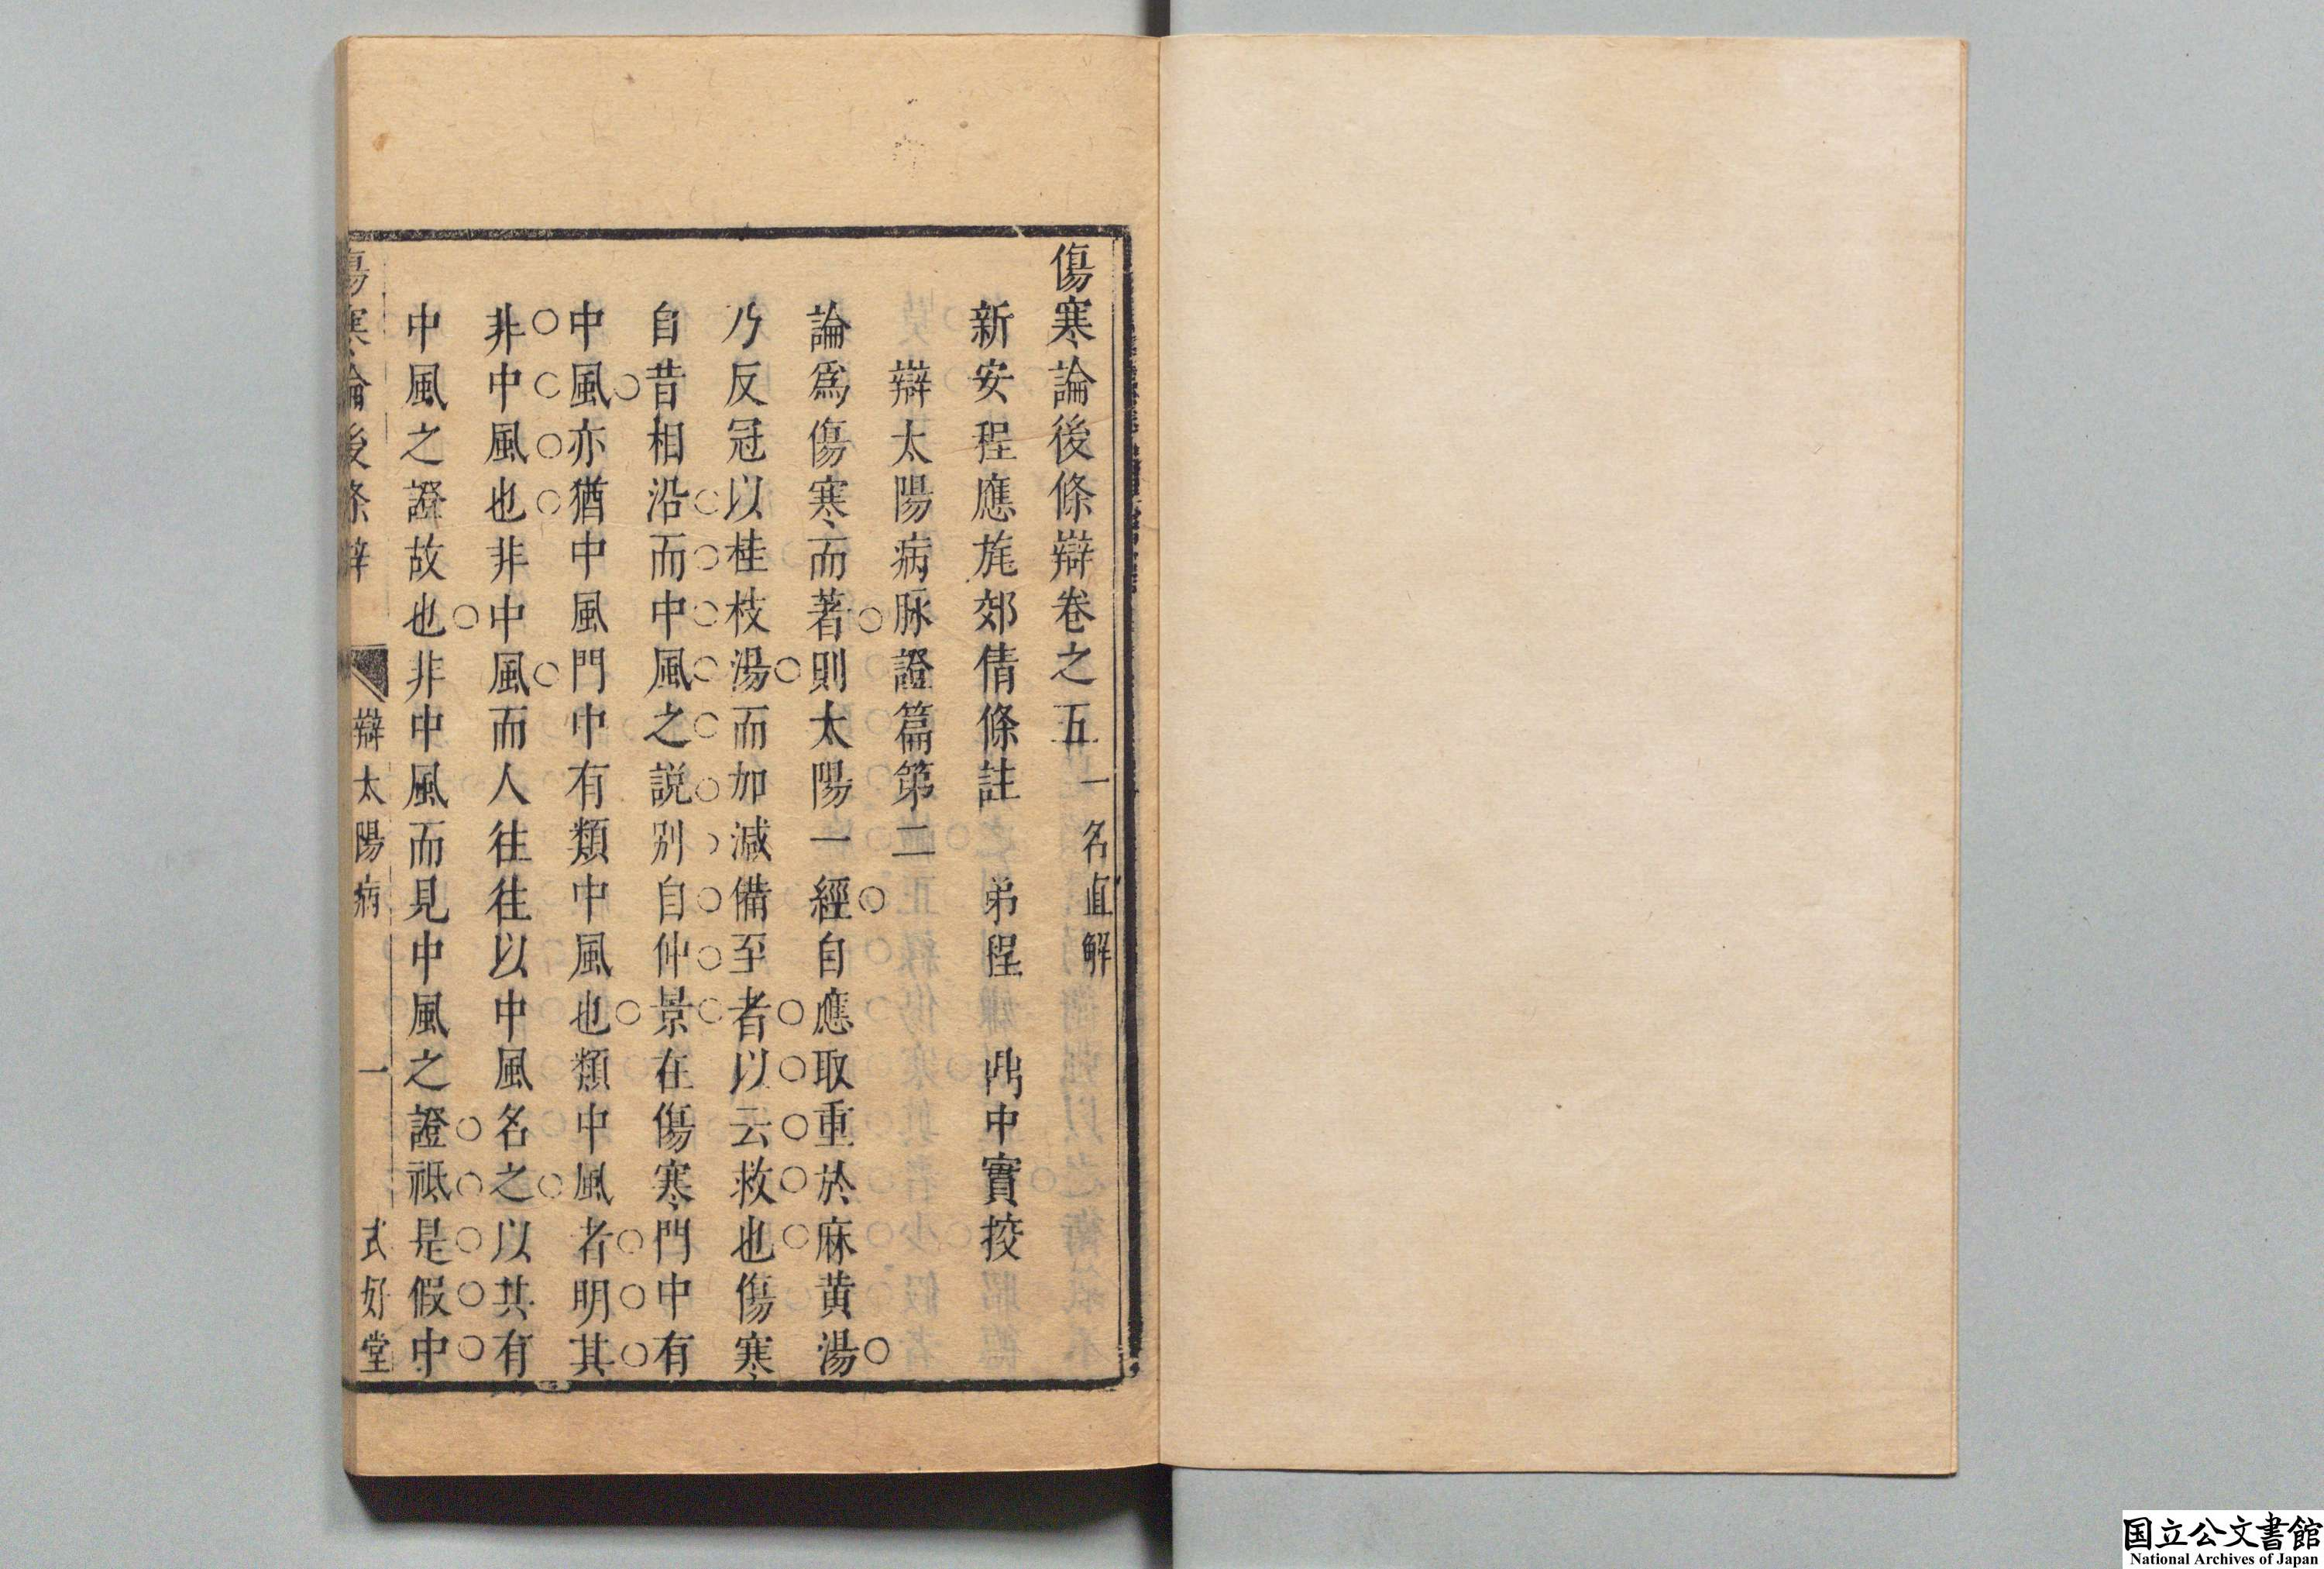 傷寒論後條辯卷之五 一名直解
新安程應旄郊倩條註 弟程 𤰞中實挍
辯太陽病脉證篇第二
論爲傷寒而著則太陽一經自應取重於麻黄湯
乃反冠以桂枝湯而加減備至者以云救也傷寒
自昔相沿而中風之説别自仲景在傷寒門中有
中風亦猶中風門中有類中風也類中風者明其
非中風也非中風而人往往以中風名之以其有
中風之證故也非中風而見中風之證祗是假中
傷寒論後條辯 辯太陽病 一 式好堂
国立公文書館
National Archives of Japan